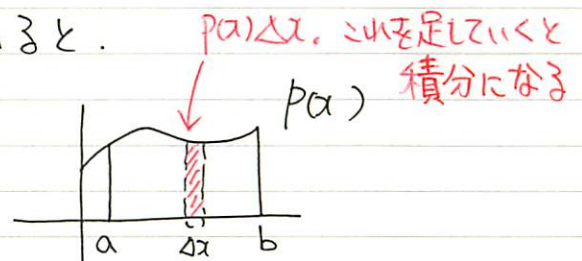 ると.
p(x)Δx. これを足していくと
積分になる
p(x)
a Δx b